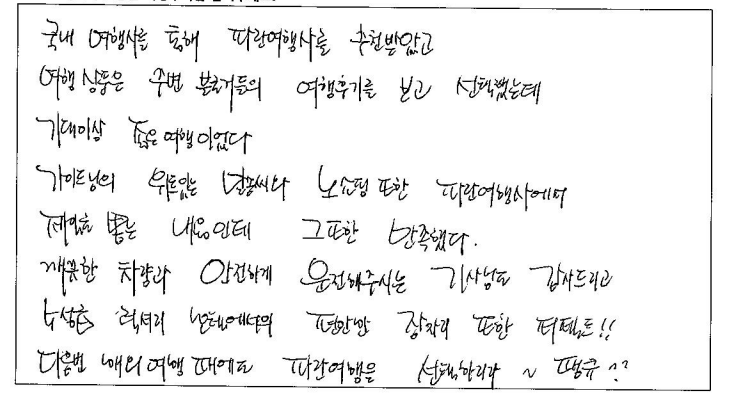 국내 여행사를 통해 파란여행사를 추천받았고
여행 상품은 주변 블로거들의 여행후기를 보고 선택했는데
기대이상 좋은 여행이었다
가이드님의 위트있는 말솜씨와 노쇼핑 또한 파란여행사에서
제일로 뽑는 내용인데 그또한 만족했다.
깨끗한 차량과 안전하게 운전해주시는 기사님도 감사드리고
럭셔리 편안한 잠자리 또한 퍼펙트!!
다음번 해외여행 때에도 파란여행을 선택하리라 ~ 땡큐^^